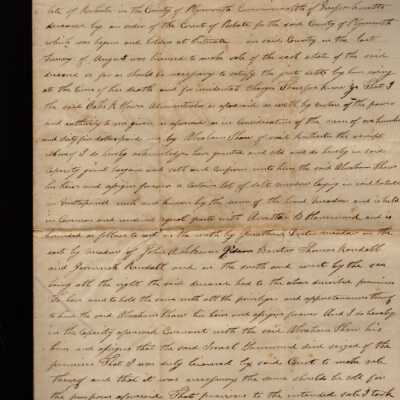 late of Rochester in the County of Plymouth Commonwealth of Massachusetts
deceased by an order of the Court of Probate for the said County of Plymouth
which was begun and holden at in said County on the last
Tuesday of August was licensed to make sale of the real estate of the said
deceased so far as should be necessary to satisfy the just debts by him owing
at the time of his death and for incidental charges Therefore know ye That I
the said Administrator as aforesaid as well by virtue of the power
and authority to me given as aforesaid as in consideration of the sum of one hundred
and sixty five dollars paid me by Abraham of said Rochester the receipt
whereof I do hereby acknowledge have granted and sold and do hereby in said
capacity grant bargain and sell and confirm unto him the said Abraham
his heirs and assigns forever a certain lot of salt meadow laying in said
in and known by the name of the meadow and is held
in common and undivided equal parts with Hammond and is
bounded as follows to wit on the north by meadow on the
east by meadow of John Gideon Barstow Thomas Randall
and Randall and on the south and west by the sea
being all the right the said deceased had to the above described premises
To have and to hold the same with all the privileges and appurtenances thereof
to him the said Abraham his heirs and assigns forever And I do hereby
in the capacity aforesaid Covenant with the said Abraham his
heirs and assigns that the said Israel Hammond died seized of the
premises That I was duly licensed by said Court to make sale
thereof and that it was necessary the same should be sold for
the purposes aforesaid That previous to the intended sale I took